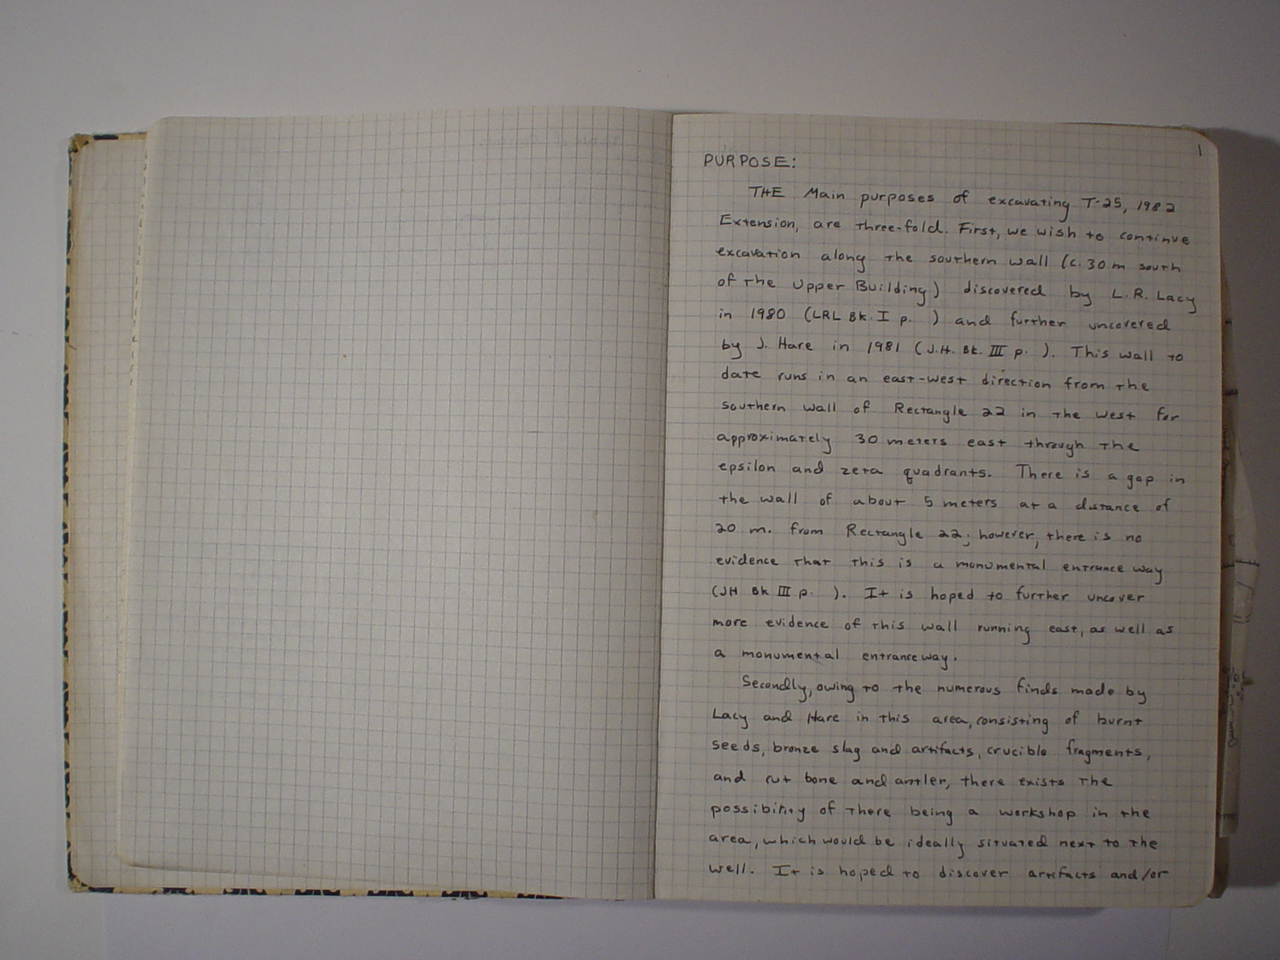 1
PURPOSE:
THE Main purposes of excavating T-25, 1982
Extension, are three-fold. First, we wish to continue
excavation along the southern wall (c. 30 m south
of the Upper Building) discovered by L.R. Lacy
in 1980 (LRL Bk. I p. ) and further uncovered
by J. Hare in 1981 (J.H. Bk. III p. ). This wall to
date runs in an east-west direction from the
southern wall of Rectangle 22 in the west for
approximately 30 meters east through the
epsilon and zeta quadrants. There is a gap in
the wall of about 5 meters at a distance of
20 m. from Rectangle 22; however, there is no
evidence that this is a monumental entrance way
(JH Bk III p. ). It is hoped to further uncover
more evidence of this wall running east, as well as
a monumental entranceway.
Secondly, owing to the numerous finds made by
Lacy and Hare in this area, consisting of burnt
seeds, bronze slag and artifacts, crucible fragments,
and cut bone and antler, there exists the
possibility of there being a workshop in the
area, which would be ideally situated next to the
well. It is hoped to discover artifacts and/or